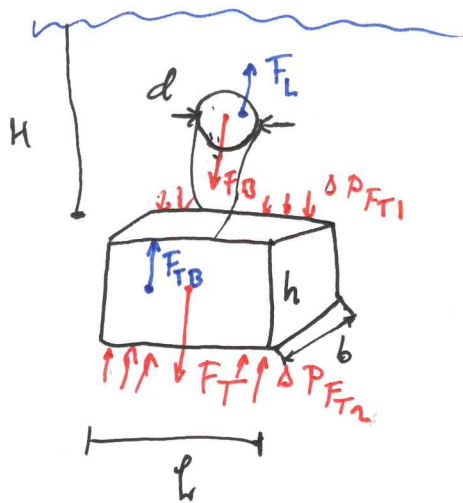 d
F_L
H
F_B
Δ P_{FT1}
F_{TB}
h
b
F_T
Δ P_{FT2}
L